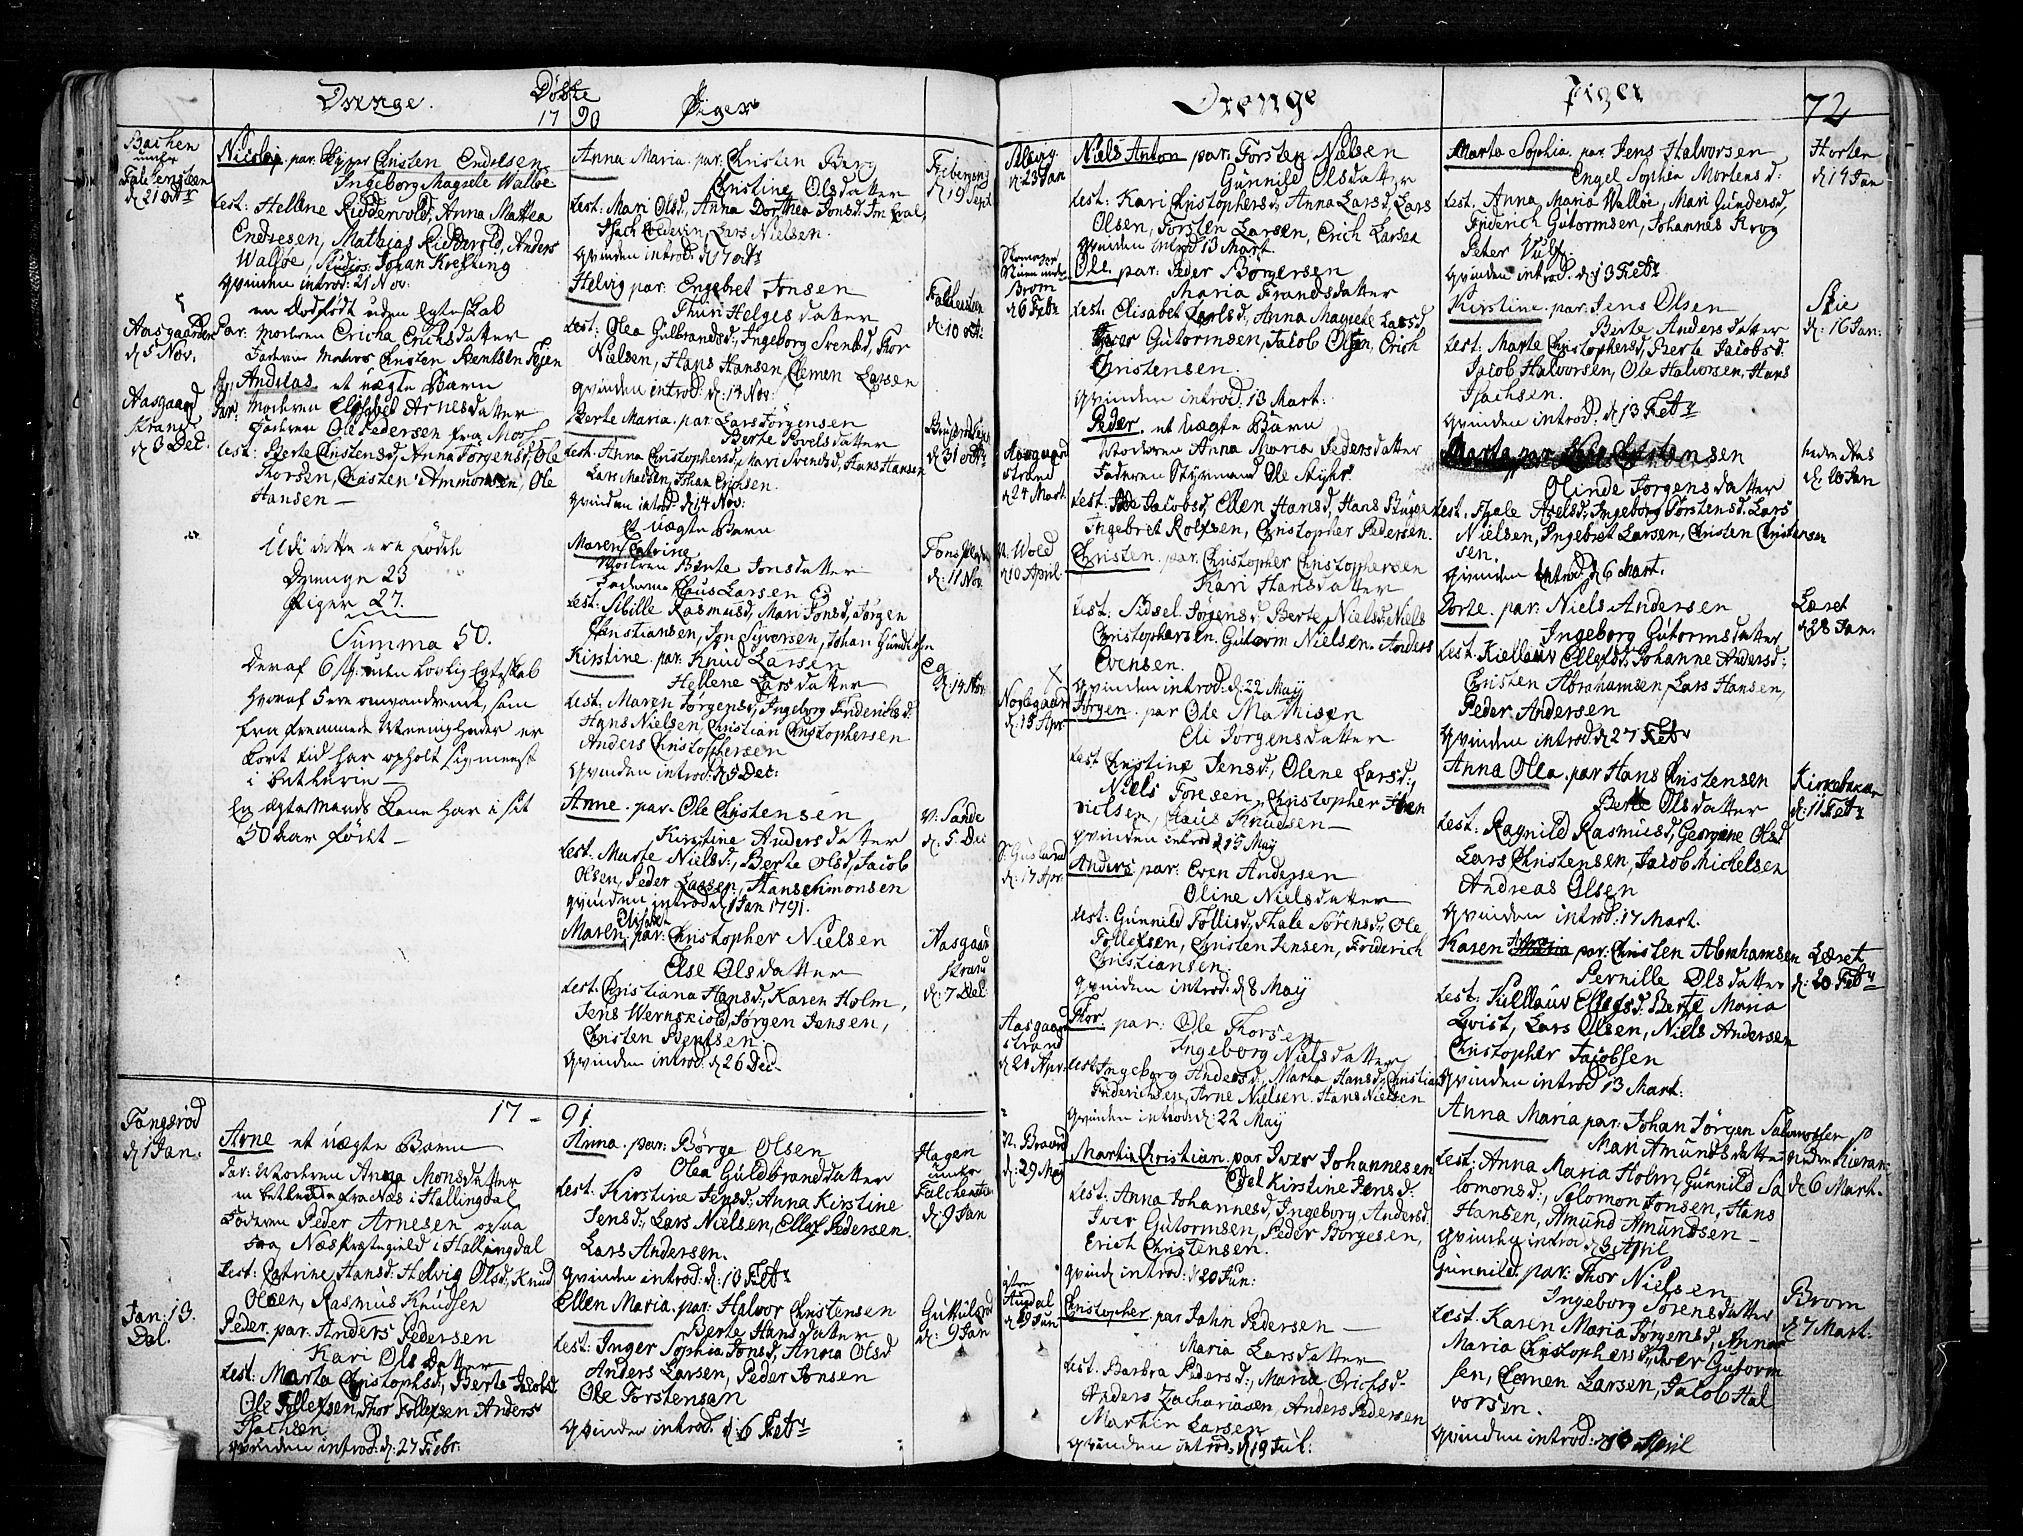 Drenge.
Døbte
17 90
Piger
Bachen
under
Falchensteen
d: 21 octr
Nicolai. par. Christen Endresen
Ingeborg Magrete Walløe
test: Hellene Riddervold, Anna Mattea
Endresen, Mathias Ridderold, Anders
Walløe, Studios: Johan Krefting
qvinden introd: 21 Nov:
en Dødfødt uden Egteskab
Aasgaarden
d 5 Nov.
Par: Moderen Ericha Erichsdatter
Faderen Matros Christen Bentsen
Aasgaard
strand
d 3 Dec.
Andreas. et uægte Barn
Par: Moderen Elisabet Arnesdatter
Faderen Ole Pedersen fra Moss
test: Berte Christensd, Anna Jørgensd, Ole
Thorsen, Christen Ammonsen, Ole
Hansen
Udi dette ere fødde
Drenge 23
Piger 27.
Summa 50.
Deraf 6 uden Lovlig Egteskab
hvoraf 5 ere omvandrende, som
fra fremmede Menigheder en
kort tid har opholt sig meest
i betlerie
En ægte Mands Kone har i sit
50 aar født
Anna Maria. par: Christen Berg
Christine Olsdatter
test: Mari Olsd, Anna Dorthea Jonsd,
Isach Ledevin, Lars Nielsen.
qvinden introd: d: 17 octr
Friborg
d 19 Sept
Helvig par: Engebret Jonsen
Thuri Helgesdatter
test: Olea Gulbrandsd, Ingeborg Svendsd, Thor
Nielsen, Hans Hansen, Clemen Larsen
qvinden introd: d: 14 Nov:
Falchensteen
d: 10 octr
Berte Maria. par: Lars Jørgensen
Berte Povelsdatter
test: Anna Christophersd, Mari Svendsd, Hans Hansen
Lars Madsen, Johan Erichsen.
qvinden introd: d 14 Nov:
d: 31 octr
Et uægte Barn
Maren Catrine
Moderen Berte Jonsdatter
Faderen Claus Larsen Eg
test: Sibille Rasmusd, Mari Jonsd, Jørgen
Christiansen, Jon Syversen, Johan Gundersen
d: 11 Nov.
Kirstine. par: Knud Larsen
Hellene Larsdatter
test: Maren Jørgensd, Ingeborg Friderichsd:
Hans Nielsen, Christian Christophersen
Anders Christophersen
qvinden introd: d 5 Dec:
Eg
d: 14 Nov:
Anne. par: Ole Christensen
Kirstine Andersdatter
test: Marte Nielsd:, Berte Olsd, Jacob
Olsen, Peder Larsen, Hans Simonsen
qvinden introd d 1 Jan 1791.
v: Sande
d. 5 Dec
Elisabet
Maren, par: Christopher Nielsen
Else Olsdatter
test: Christiana Hansd:, Karen Holm,
Jens Wernskiold, Jørgen Jensen,
Christen Bentsen.
qvinden introd: d 26 Dec.
Aasgaard
strand
d: 7 Dec
17 - 91
Tangsrød
d 1 Jan.
Arne et uægte Barn
Par: Moderen Anna Monsdatter
en betlerske fra Næs i Hallingdal
Faderen Peder Arnesen ogsaa
fra Næs Præstegield i Hallingdal
test: Catrine Hansd: Helvig Olsd, Knud
Olsen, Rasmus Knudsen
Jan: 13.
Dal.
Peder. par. Anders Pedersen
Kari Olsdatter
test: Marta Christophsd, Berte Jacobsd
Ole Tollefsen, Thor Tollefsen Anders
Isachsen
qvinden introd: d: 27 Febr:
Anna. par: Børge Olsen
Olea Guldbrandsdatter
test: Kirstine Jensd, Anna Kirstine
Jensd:, Lars Nielsen, Ellef Pedersen
Lars Andersen.
qvinden introd: d: 10 Febr
Hagen
under
Falchensten
d: 9 Jan
Ellen Maria. par: Halvor Christensen
Berte Hansdatter
test: Inger Sophia Jonsd, Anna Olsd
Anders Larsen, Peder Jonsen
Ole Torstensen
qvinden introd. d: 6 Febr
d: 9 Jan
Drenge
Piger
72
d: 23 Jan
Niels Anton par: Torsten Nielsen
Gunnild Olsdatter
test: Kari Christophersd, Anna Larsd, Lars
Olsen, Torsten Larsen, Erich Larsen
qvinden introd 13 Mart.
Brom
d 6 Febr
Ole. par: Peder Børgersen
Maria Frandsdatter
test: Elisabet Carlsd, Anna Magrete Larsd,
Iver Gutormsen, Jacob Olsen, Erich
Christensen.
qvinden introd: 13 Mart:
Aasgaard
strand
d 24 Mart.
Peder. et uægte Barn
Moderen Anna Maria Pedersdatter
Faderen Styrmand Ole
test: Jacobsd, Ellen Hansd, Hans Bugge
Ingebret Rolfsen, Christopher Pedersen.
N. Wold
d 10 April
Christen. par. Christopher Christophersen
Kari Hansdatter
test: Sidsel Jørgensd, Berte Nielsd, Niels
Christophersen. Gutorm Nielsen. Anders
Evensen.
qvinden introd: d: 22 May
X
d: 15 Apr
Jørgen. par Ole Mathisen
Eli Jørgensdatter
test Christine Jensd, Olene Larsd:,
Niels Toresen, Christopher
nielsen, Claus Knudsen
qvinden introd d 15 May
d: 17 Apr
Anders. par: Even Andersen
Oline Nielsdatter
test: Gunnild Tollisd, Thale Sørensd:, Ole
Tollefsen, Christen Jensen, Friderich
Christiansen.
qvinden introd: d 8 May
Aasgaard
strand
d 21 Apr.
Thor par: Ole Thorsen
Ingeborg Nielsdatter
test Ingeborg Andersd, Marta Hansd:, Christian
Friderichsen, Arne Nielsen. Hans Nielsen
qvinden introd d: 22 May
d: 29 May
Martin Christian. par Iver Johannesen
Edel Kirstine Jensd:
test: Anna Johannesd, Ingeborg Andersd.
Iver Gutormsen, Peder Børgesen,
Erich Christensen.
qvind introd: d 20 Jun:
d 19 Jun
Christopher. par John Pedersen
Maria Larsdatter
test: Barbra Pedersd:, Maria Erichsd
Anders Zachariasen, Anders Pedersen
Martin Larsen
qvinden introd: d 19 Jul:
Marta Sophia. par. Jens Halvorsen
Engel Sophia Mortensd:
test. Anna Maria Walløe, Mari Gundersd,
Friderich Gutormsen, Johannes Krog
Peter Vulf.
qvinden introd. d: 13 Febr
Horten
d 14 Jan
Kirstine. par. Jens Olsen
Berte Andersdatter
test: Marte Christophersd, Berte Jacobsd.
Jacob Halvorsen, Ole Halvorsen, Hans
Isachsen.
qvinden introd. d 13 Febr
d: 16 Jan:
Marta par Christensen
Olinde Jørgensdatter
test. Thale Axelsd, Ingeborg Torstensd, Lars
Nielsen, Ingebret Larsen, Christen Christensen
sen.
qvinden introd. d 6 Mart.
nedre Aas
d: 20 Jan
Dorte. par: Niels Andersen
Ingeborg Gutormsdatter
test. Kiellaus Ellefsd, Johanne Andersd:
Christen Abrahamsen, Lars Hansen,
Peder Andersen
qvinden introd d: 27 Febr
Læret
d 28 Jan:
Anna Olea. par Hans Christensen
Berte Olsdatter
test: Ragnild Rasmusd, Georgine Olsd
Lars Christensen, Jacob Michelsen
Andreas Olsen
qvinden introd. 17 Mart.
Kirkebakken
d: 11 Febr
Karen par: Christen Abrahamsen
Pernille Olsdatter
test: Kiellaus Ellefsd: Berte Maria
Qvist, Lars Olsen, Niels Andersen
Christopher Jacobsen
qvinden introd 13 Mart.
Læret
d: 20 Febr
Anna Maria par: Johan Jørgen Salomonsen
Mari Amundsdatter
test: Anna Maria Holm, Gunnild Sa
lomonsd:, Salomon Jonsen, Hans
Hansen, Amund Amundsen
qvinden introd d 3 April
d 6 Mart.
Gunnild. par: Thor Nielsen
Ingeborg Sørensdatter
test. Karen Maria Jørgensd, Anna
Maria Christophersd, Iver Gutorm
sen, Clemen Larsen, Jacob Hal
vorsen.
qvinden introd: d: April
Brom
d 7 Mart.